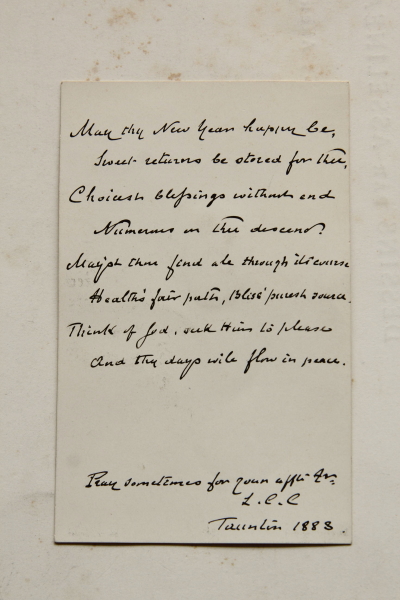 May thy New Year happy be,
Sweet returns be stored for thee,
Choicest blessings without end
Numerous on thee descend.
May'st thou find all through its course
Health's fair path, bliss' purest source.
Think of God, seek Him to please
And thy days will flow in peace.
Pray sometimes for your affte
L.C.C
Taunton 1883.